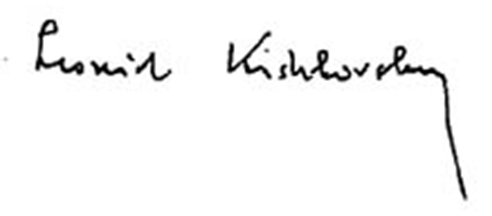 Leonid Kishkovsky